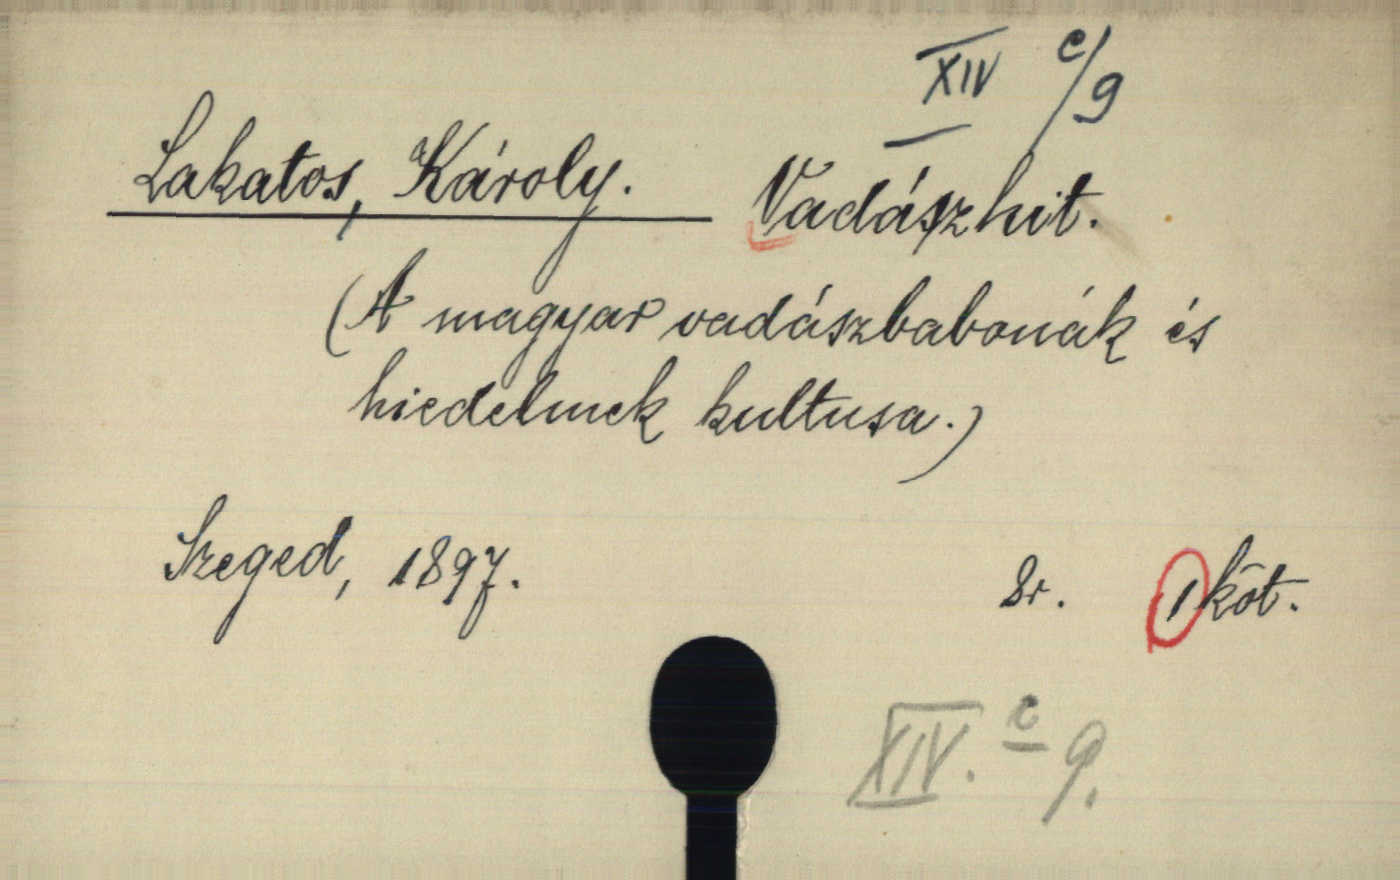 XIV c/9
Lakatos, Károly. Vadászhit.
(A magyar vadászbabonák és
hiedelmek kultusa.)
Szeged, 1897. 8r. 1 köt.
XIV. c 9.